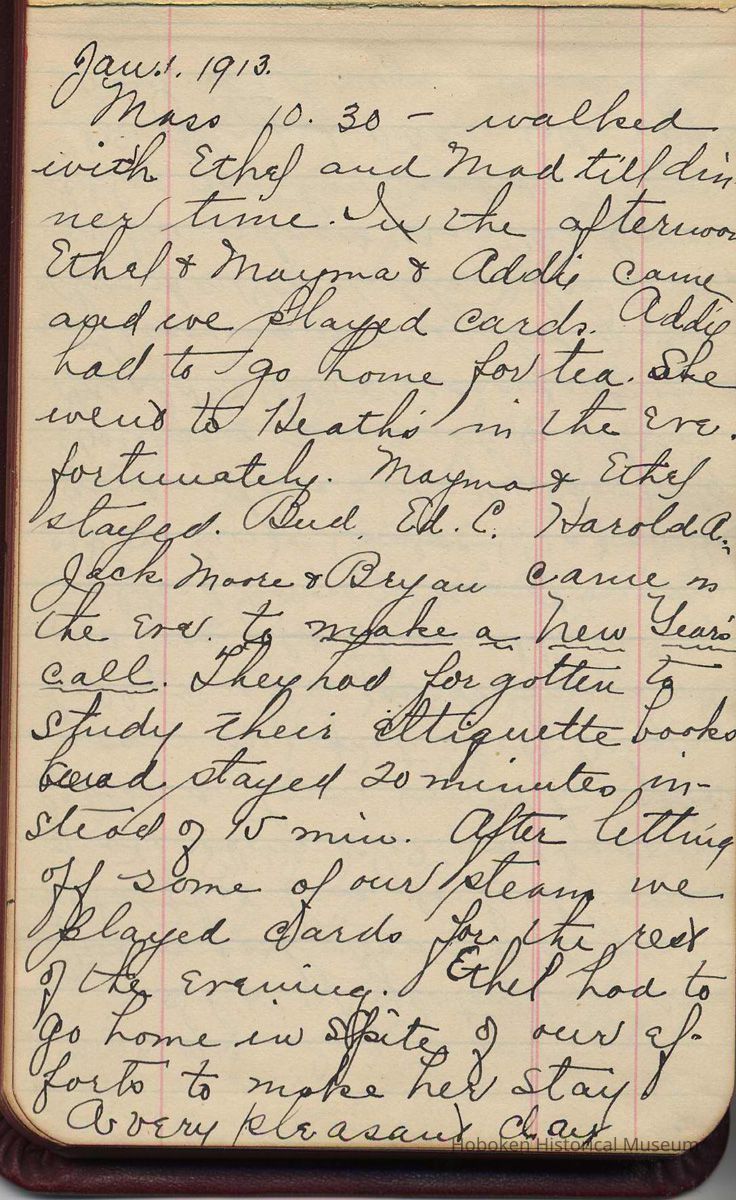 Jan. 1. 1913.
Mass 10.30 - walked
with Ethel and Mad till din-
ner time. In the afternoon
Ethel & Mayma & Addie came
and we played cards. Addie
had to go home for tea. She
went to Heath's in the eve.
fortunately. Mayma & Ethel
stayed. Bud, Ed. C. Harold A.
Jack Moore & Bryan came in
the eve. to make a New Year's
call. They had forgotten to
study their ettiquette books
and stayed 20 minutes in-
stead of 15 min. After letting
off some of our steam we
played cards for the rest
of the evening. Ethel had to
go home in spite of our ef-
forts to make her stay
A very pleasant day
Hoboken Historical Museum